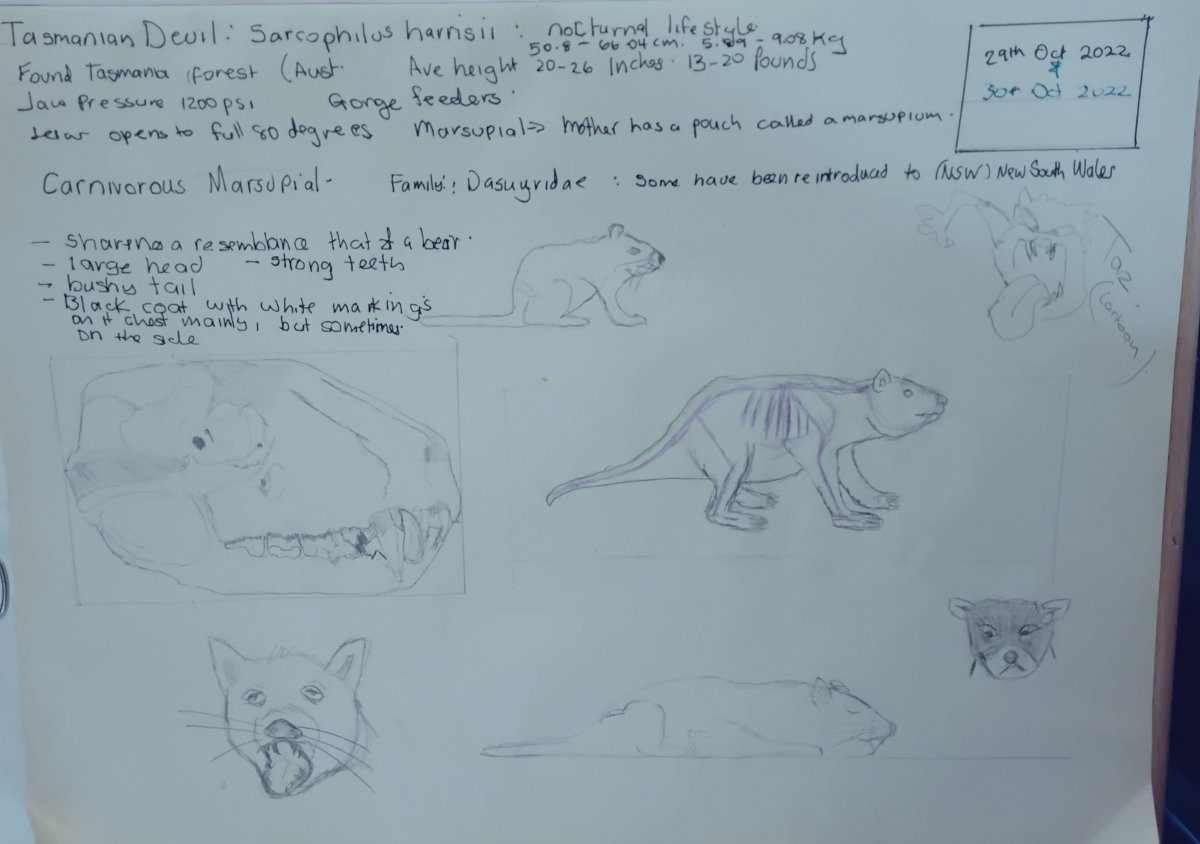 Tasmanian Devil: Sarcophilus harrisii : nocturnal lifestyle
50.8 - 66.04cm. 5.89 - 9.08 Kg
Found Tasmania iForest (Aust. Ave height 20-26 Inches. 13-20 Pounds
Jaw Pressure 1200psi Gorge feeders.
opens to full 80 degrees Marsupial => Mother has a pouch called a marsupium.
29th Oct 2022
&
30t Oct 2022
Carnivorous Marsupial- Family: Dasuyridae : Some have been reintroduced to (NSW) New South Wales
- Sharing a resemblance that of a bear.
- large head - strong teeth
- bushy tail
- Black coat with white markings
on it chest mainly, but sometimes.
on the side
Taz.
(cartoon)